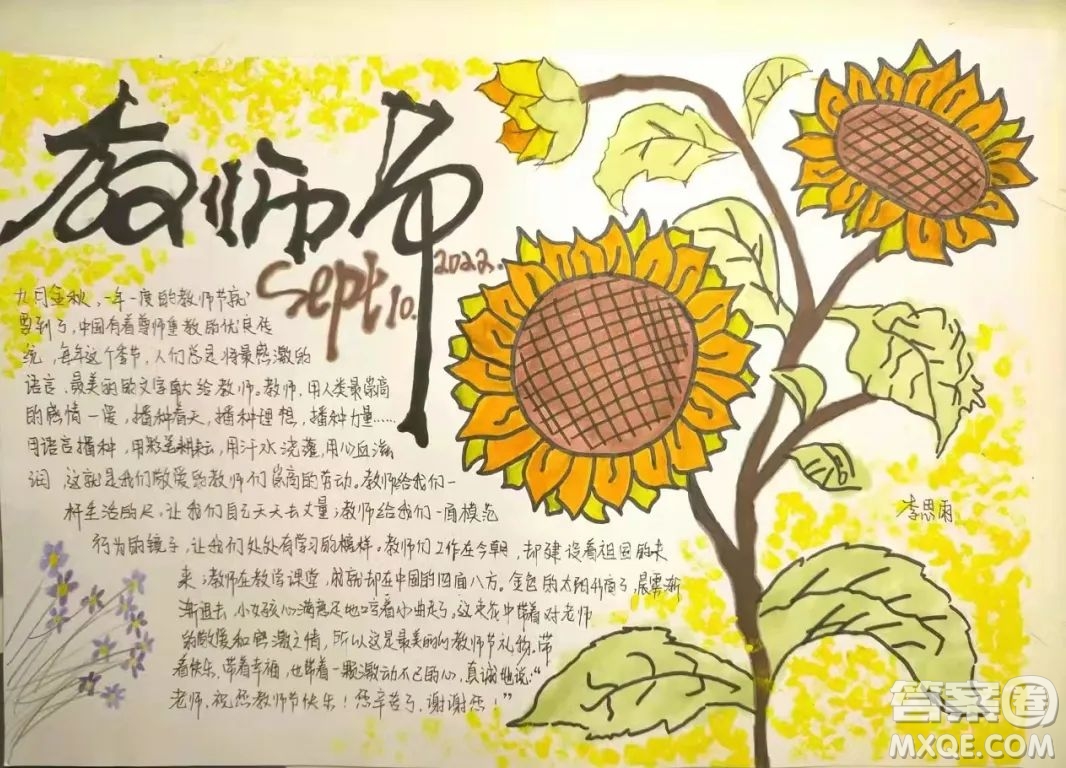 教师节
Sept 10.
2022.
九月金秋，一年一度的教师节就
要到了，中国有着尊师重教的优良传
统，每年这个季节，人们总是将最感激的
语言、最美丽的文字献给教师。教师，用人类最崇高
的感情一爱，播种春天，播种理想，播种力量……
用语言播种，用彩笔耕耘，用汗水浇灌，用心血滋
润，这就是我们敬爱的教师们崇高的劳动。教师给我们一
杆生活的尺，让我们自己天天去丈量；教师给我们一面模范
行为的镜子，让我们处处有学习的榜样。教师们工作在今朝，却建设着祖国的未
来；教师在教学课堂，成就却在中国的四面八方。金色的太阳升高了，晨雾渐
渐退去，小女孩心满意足地哼着小曲走了。这束花中带着对老师
的敬爱和感激之情，所以这是最美丽的教师节礼物，带
着快乐，带着幸福，也带着一颗激动不已的心，真诚地说：“
老师，祝您教师节快乐！您辛苦了，谢谢您！”
李思雨
答案圈
MXQE.COM